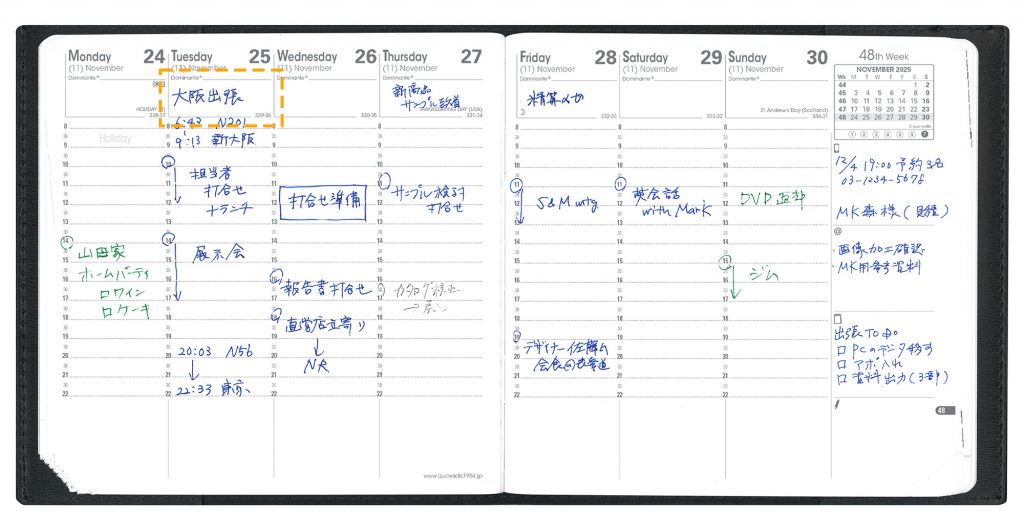 Monday 24
(11) November
Dominante®
HOLIDAY
328-37
Holiday
山田家
ホームパーティ
ロワイン
ロケーキ
Tuesday 25
(11) November
大阪出張
329-36
6:43 N201
9:13 新大阪
担当者
打合せ
+ランチ
展示会
20:03 N56
22:33 東京
Wednesday 26
(11) November
Dominante®
330-35
打合せ準備
報告書打合せ
直営店立寄り
NR
Thursday 27
(11) November
Dominante®
新商品
サンプル到着
DAY (USA)
331-34
サンプル検討
打合せ
カタログ修正
Friday 28
(11) November
Dominante®
精算〆切
332-33
S&M mtg
デザイナー佐藤さん
Saturday 29
(11) November
Dominante®
333-32
英会話
with Mark
Sunday 30
(11) November
Dominante®
St. Andrew's Day (Scotland)
334-31
DVD返却
ジム
48th Week
NOVEMBER 2025
Wk M T W T F S S
44 1 2
45 3 4 5 6 7 8 9
46 10 11 12 13 14 15 16
47 17 18 19 20 21 22 23
48 24 25 26 27 28 29 30
1 2 3 4 5 6 7
12/4 19:00 予約3名
03-1234-5678
MK森様(日経)
@
・画像加工確認
・MK用参考資料
出張TO DO
□ PCのデータ移す
□ アポ入れ
□ 資料出力(3部)
48
www.quovadis1954.jp